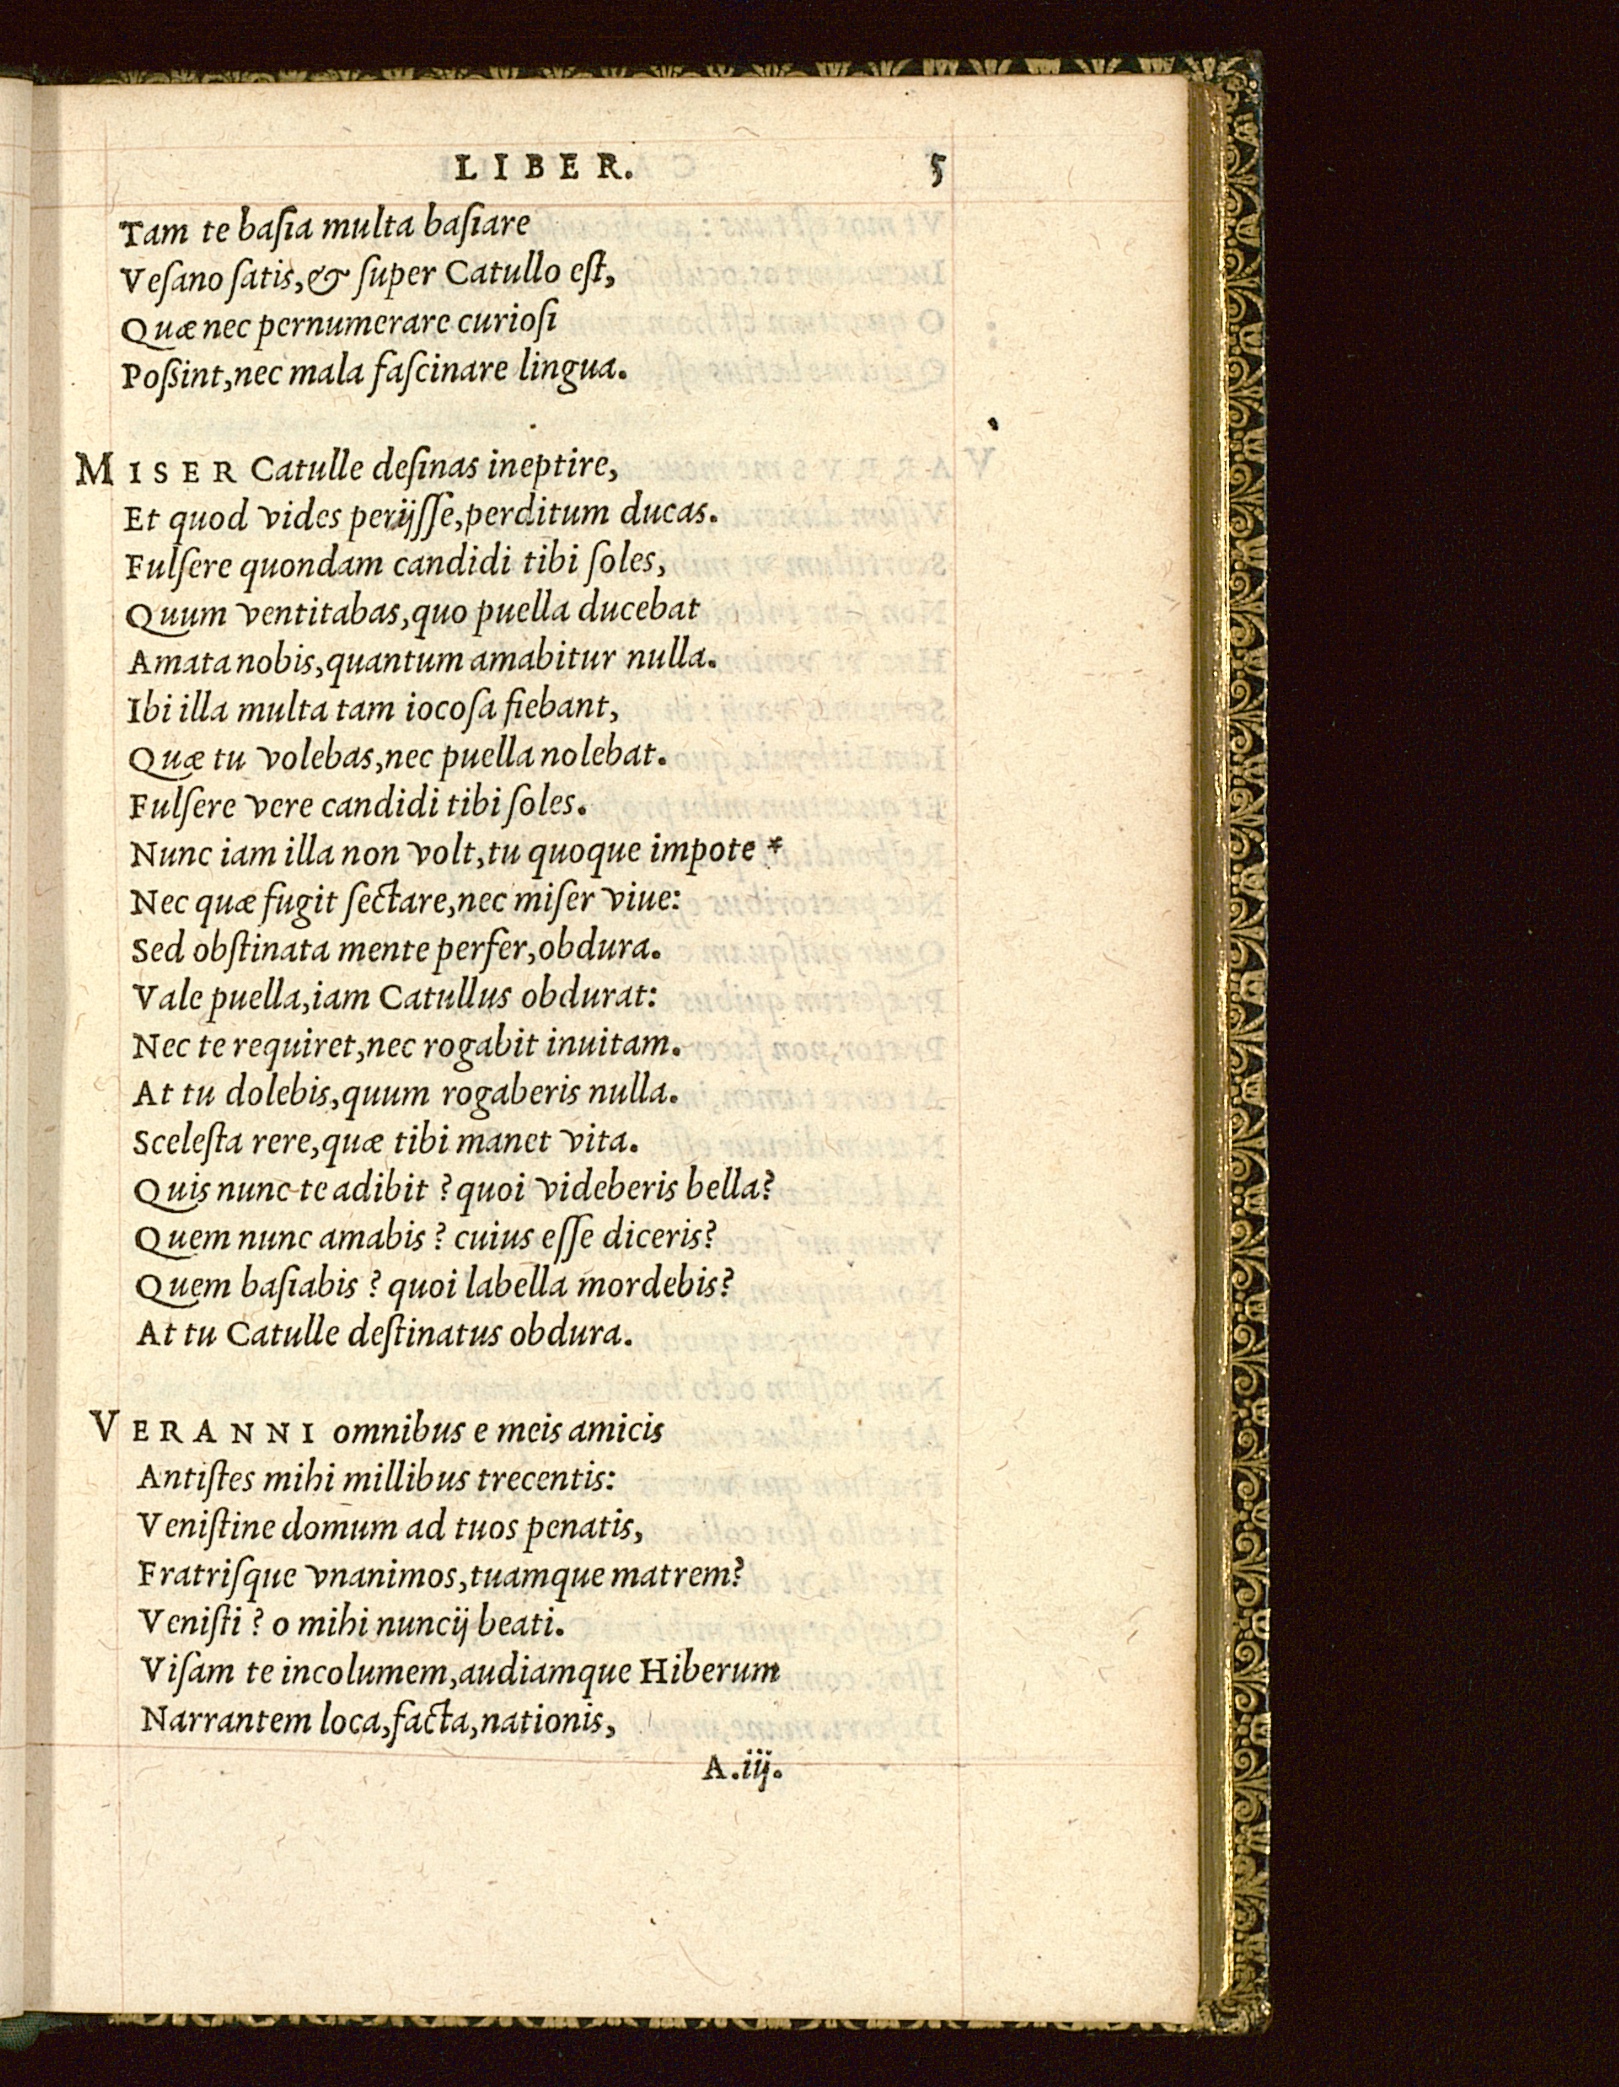 LIBER. 5
Tam te baſia multa baſiare
Veſano ſatis, & ſuper Catullo eſt,
Quæ nec pernumerare curioſi
Poſsint, nec mala faſcinare lingua.
MISER Catulle deſinas ineptire,
Et quod vides perijſſe, perditum ducas.
Fulſere quondam candidi tibi ſoles,
Quum ventitabas, quo puella ducebat
Amata nobis, quantum amabitur nulla.
Ibi illa multa tam iocoſa fiebant,
Quæ tu volebas, nec puella nolebat.
Fulſere vere candidi tibi ſoles.
Nunc iam illa non volt, tu quoque impote *
Nec quæ fugit ſectare, nec miſer viue:
Sed obſtinata mente perfer, obdura.
Vale puella, iam Catullus obdurat:
Nec te requiret, nec rogabit inuitam.
At tu dolebis, quum rogaberis nulla.
Sceleſta rere, quæ tibi manet vita.
Quis nunc te adibit? quoi videberis bella?
Quem nunc amabis? cuius eſſe diceris?
Quem baſiabis? quoi labella mordebis?
At tu Catulle deſtinatus obdura.
VERANNI omnibus e meis amicis
Antiſtes mihi millibus trecentis:
Veniſtine domum ad tuos penatis,
Fratriſque vnanimos, tuamque matrem?
Veniſti? o mihi nuncij beati.
Viſam te incolumem, audiamque Hiberum
Narrantem loca, facta, nationis,
A.iij.